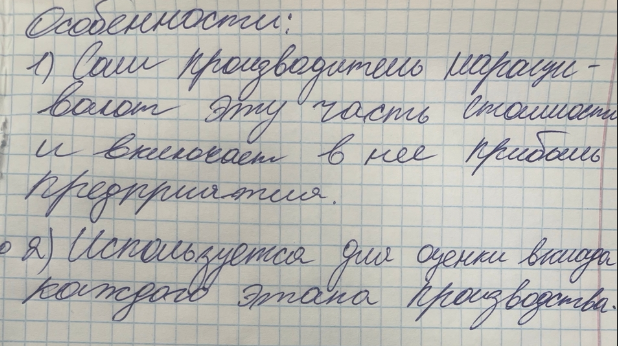 Особенности:
1) Сам производитель наращи-
вает эту часть стоимости
и включает в нее прибыль
предприятия.
2) Используется для оценки вклада
каждого этапа производства.